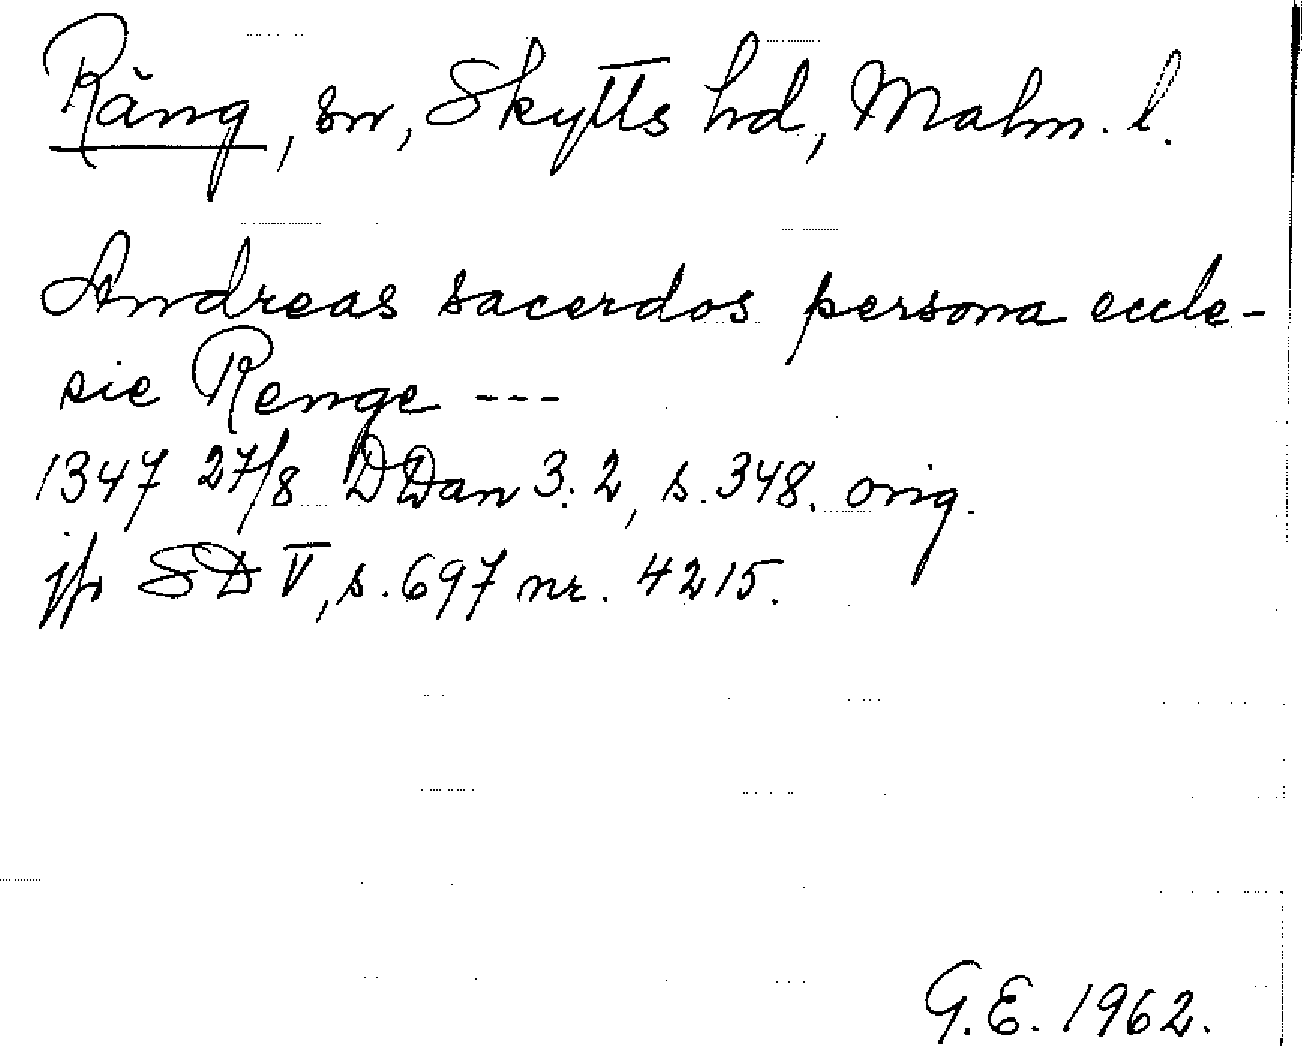 Räng, sn, Skytts hd, Malm. l.
Andreas sacerdos persona eccle-
sie Renge ---
1347 27/8 DDan 3:2, s. 348. orig.
jfr SD V, s. 697 nr. 4215.
G.E. 1962.